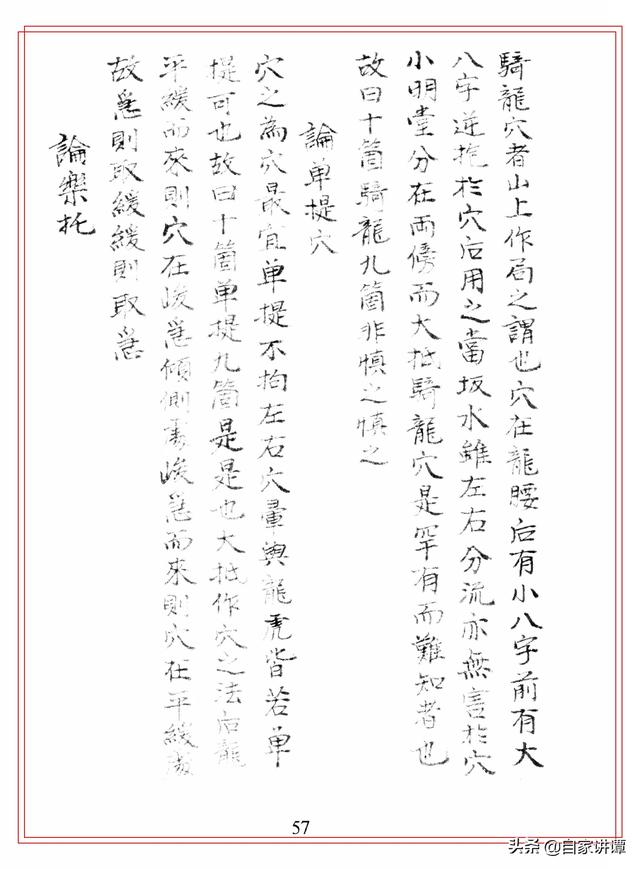 騎龍穴者山上作局之謂也穴在龍腰后有小八字前有大
八字逆抱於穴后用之當坂水雖左右分流亦無害於穴
小明堂分在兩傍而大抵騎龍穴是罕有而難知者也
故曰十箇騎龍九箇非慎之慎之
論单提穴
穴之為穴最宜单提不拘左右穴暈與龍虎皆若单
提可也故曰十箇单提九箇是是也大抵作穴之法后龍
平緩而來則穴在峻急傾側處峻急而來則穴在平緩處
故急則取緩緩則取急
論樂托
57
头条 @自家讲谭